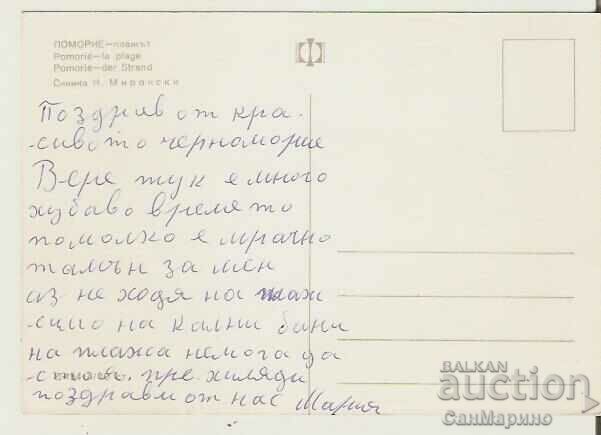 ПОМОРИЕ—плажът
Pomorie—la plage
Pomorie—der Strand
Снимка Н. Мирански
Поздрав от кра-
-сивото черноморие
Вере тук е много
хубаво времято
помолко е мрачно
тамън за мен
аз не ходя на плаж
-само на кални бани
на плажа немога да
пре хиляди
поздрави от нас Мария
BALKAN
auction
СанМарино